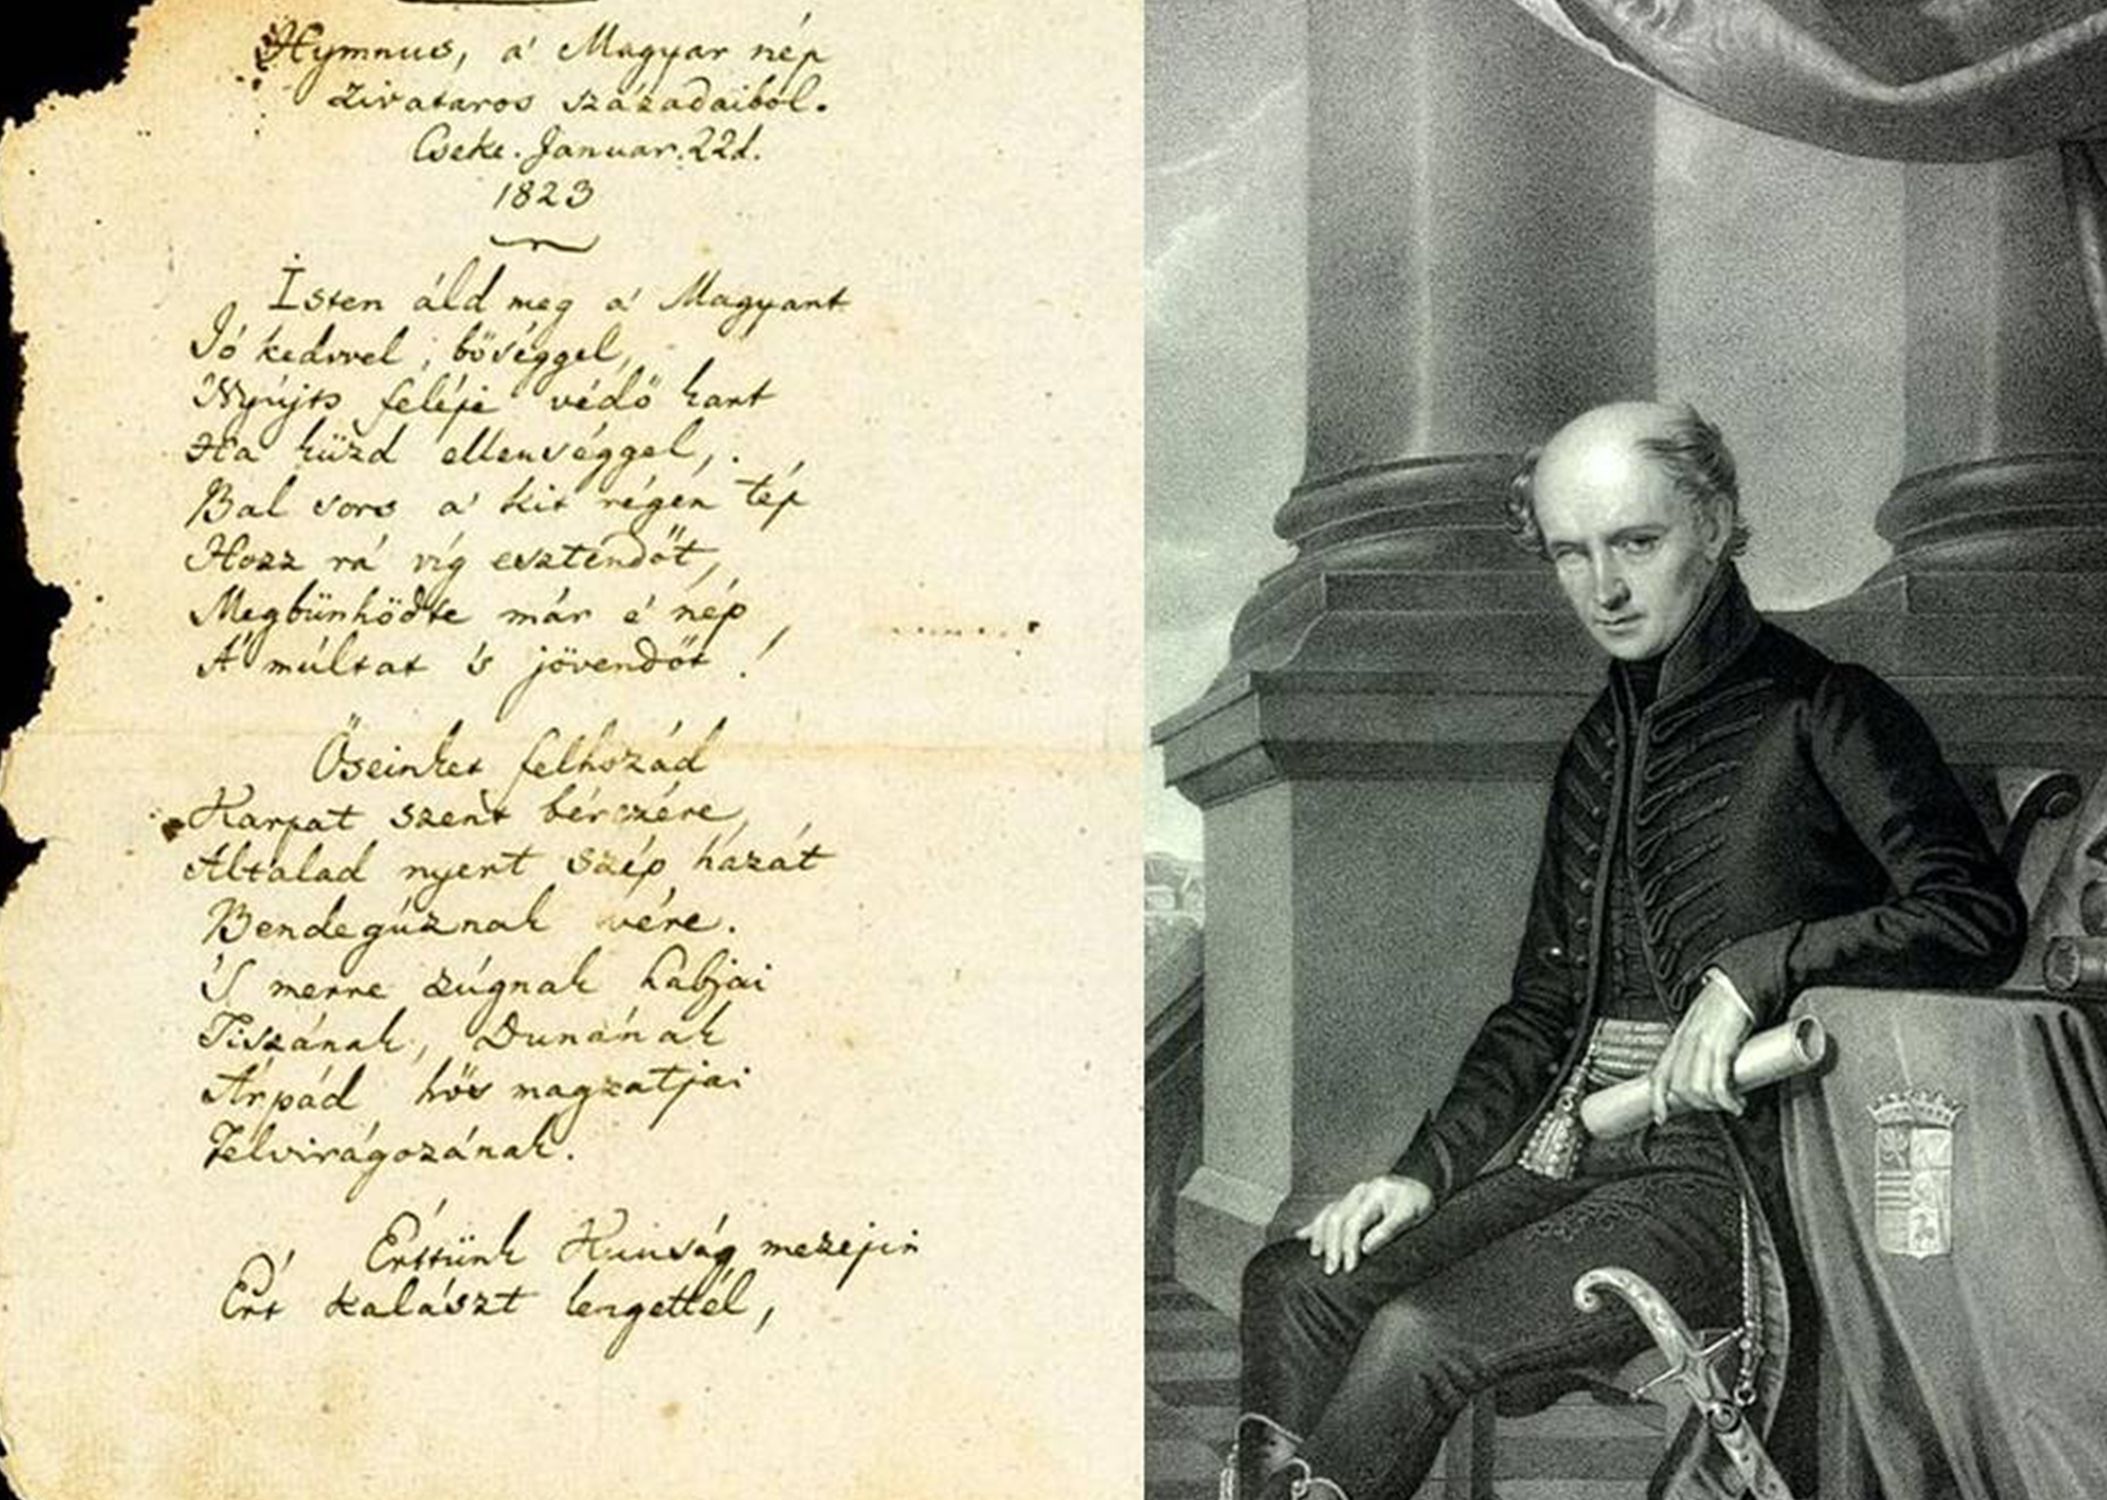 Hymnus, a' Magyar nép
zivataros századaiból.
Cseke. Januar. 22d.
1823
Isten áld meg a' Magyart
Jó kedvvel, bőséggel,
Nyújts feléje védő kart
Ha küzd ellenséggel,
Bal sors a' kit régen tép
Hozz rá víg esztendőt,
Megbünhődte már e' nép
A' múltat 's jövendőt!
Őseinket felhozád
Kárpát szent bérczére
Általad nyert szép hazát
Bendegúznak vére.
'S merre zúgnak habjai
Tiszának, Dunának
Árpád hős magzatjai
Felvirágozának.
Értünk Kunság mezejin
Ért kalászt lengettél,